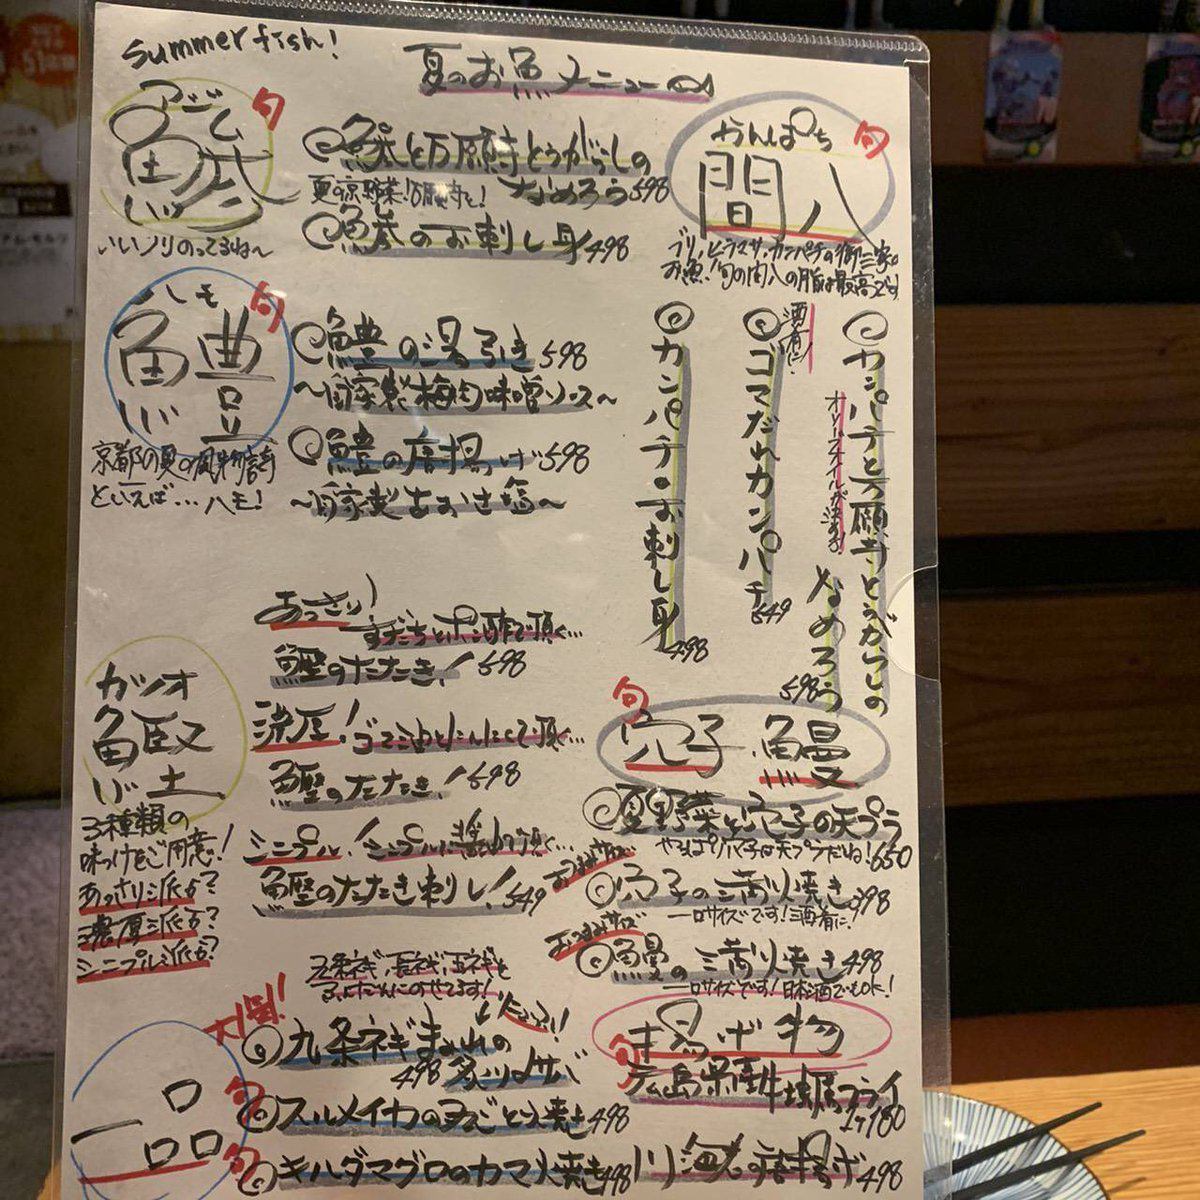 summer fish!
夏のお魚メニュー
アジ
鯵
旬
いいノリのってるね〜
鯵と万願寺とうがらしの
なめろう 598
夏の京野菜!万願寺と!
鯵のお刺し身 498
かんぱち
間八
旬
ブリ、ヒラマサ、カンパチの御三家の
お魚!旬の間八の脂は最高です!
カンパチと万願寺とうがらしの
なめろう 598
酒肴に!
ゴマだれカンパチ 549
カンパチのお刺し身 498
ハモ
鱧
旬
京都の夏の風物詩
といえば…ハモ!
鱧の湯引き 598
〜自家製梅肉味噌ソース〜
鱧の唐揚げ 598
〜自家製あおさ塩〜
カツオ
鰹
3種類の
味つけをご用意!
あっさり派か?
濃厚派か?
シンプル派か?
あっさり!
すだちとポン酢で頂く…
鰹のたたき! 598
濃厚!ゴマ油とにんにくで頂く…
鰹のたたき! 598
シンプル!シンプルに醤油で頂く…
鰹のたたき刺し! 549
旬
穴子 鰻
夏野菜と穴子の天プラ
やっぱり穴子は天プラだね! 650
おつまみサイズ
穴子の蒲焼き 398
一口サイズです!酒肴に!
おつまみサイズ
鰻の蒲焼き 498
一口サイズです!日本酒でもOK!
一品
九条ネギ、長ネギ、玉ネギを
ふんだんにのせてます!
九条ネギまみれの
炙りしめサバ 498
旬
スルメイカの丸ごとり焼き 498
旬
キハダマグロのカマ焼き 498
揚げ物
旬
広島県産牡蠣フライ
1ヶ180
川海老の唐揚げ 498